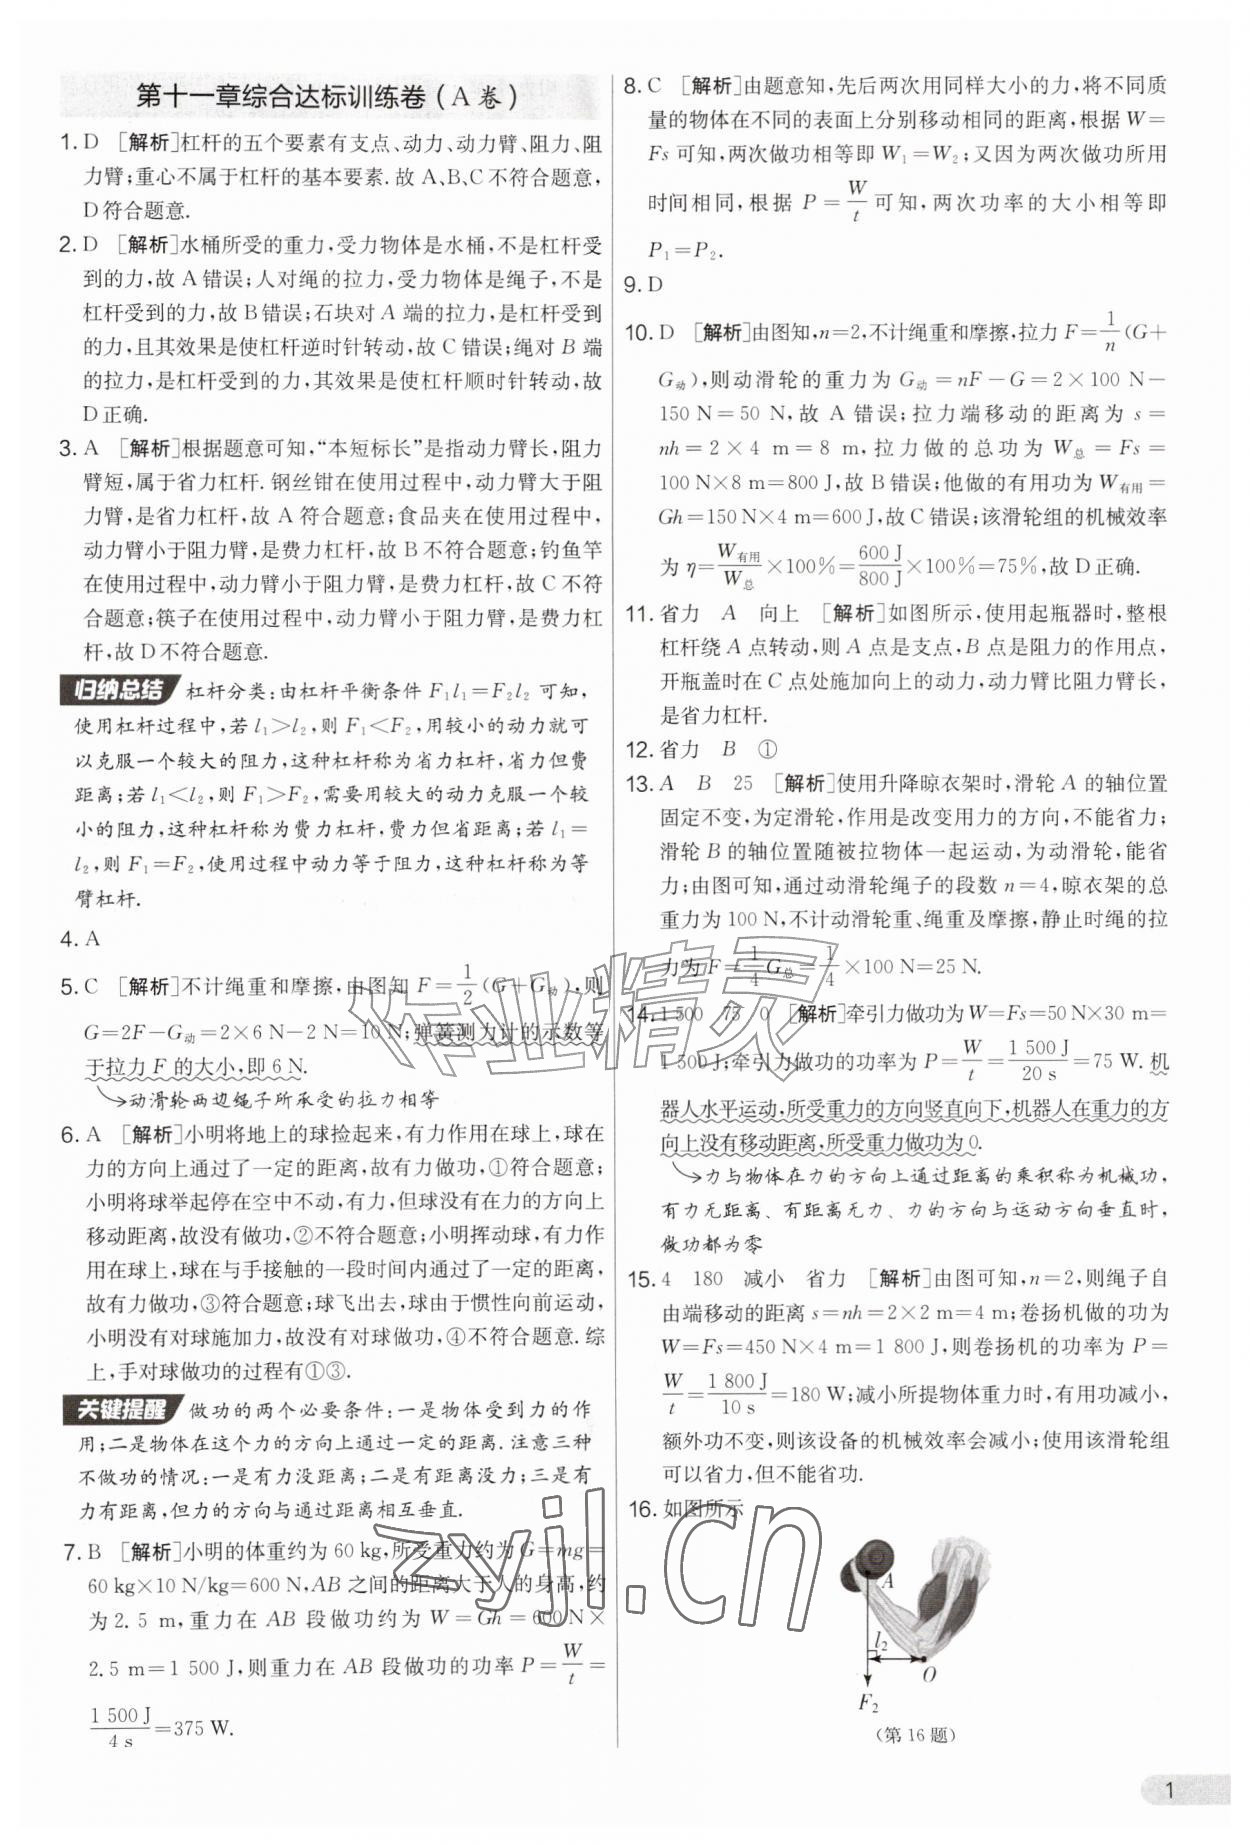 第十一章综合达标训练卷(A卷)
1. D [解析]杠杆的五个要素有支点、动力、动力臂、阻力、阻
力臂;重心不属于杠杆的基本要素.故 A、B、C 不符合题意,
D符合题意.
2. D [解析]水桶所受的重力,受力物体是水桶,不是杠杆受
到的力,故 A 错误;人对绳的拉力,受力物体是绳子,不是
杠杆受到的力,故 B 错误;石块对 A 端的拉力,是杠杆受到
的力,且其效果是使杠杆逆时针转动,故 C 错误;绳对 B 端
的拉力,是杠杆受到的力,其效果是使杠杆顺时针转动,故
D正确.
3. A [解析]根据题意可知,“本短标长”是指动力臂长,阻力
臂短,属于省力杠杆. 钢丝钳在使用过程中,动力臂大于阻
力臂,是省力杠杆,故 A 符合题意;食品夹在使用过程中,
动力臂小于阻力臂,是费力杠杆,故 B 不符合题意;钓鱼竿
在使用过程中,动力臂小于阻力臂,是费力杠杆,故 C 不符
合题意;筷子在使用过程中,动力臂小于阻力臂,是费力杠
杆,故 D 不符合题意.
归纳总结 杠杆分类:由杠杆平衡条件 F₁l₁=F₂l₂ 可知,
使用杠杆过程中,若 l₁>l₂,则 F₁<F₂,用较小的动力就可
以克服一个较大的阻力,这种杠杆称为省力杠杆,省力但费
距离;若 l₁<l₂,则 F₁>F₂,需要用较大的动力克服一个较
小的阻力,这种杠杆称为费力杠杆,费力但省距离;若 l₁=
l₂,则 F₁=F₂,使用过程中动力等于阻力,这种杠杆称为等
臂杠杆.
4. A
5. C [解析]不计绳重和摩擦,由图知 F=1/2(G+G动),则
G=2F-G动=2×6 N-2 N=10 N;弹簧测力计的示数等
于拉力 F 的大小,即 6 N.
动滑轮两边绳子所承受的拉力相等
6. A [解析]小明将地上的球捡起来,有力作用在球上,球在
力的方向上通过了一定的距离,故有力做功,①符合题意;
小明将球举起停在空中不动,有力,但球没有在力的方向上
移动距离,故没有做功,②不符合题意;小明挥动球,有力作
用在球上,球在与手接触的一段时间内通过了一定的距离,
故有力做功,③符合题意;球飞出去,球由于惯性向前运动,
小明没有对球施加力,故没有对球做功,④不符合题意. 综
上,手对球做功的过程有①③.
关键提醒 做功的两个必要条件:一是物体受到力的作
用;二是物体在这个力的方向上通过一定的距离. 注意三种
不做功的情况:一是有力没距离;二是有距离没力;三是有
力有距离,但力的方向与通过距离相互垂直.
7. B [解析]小明的体重约为 60 kg,所受重力约为 G=mg=
60 kg×10 N/kg=600 N,AB 之间的距离大于人的身高,约
为 2.5 m,重力在 AB 段做功约为 W=Gh=600 N×
2.5 m=1 500 J,则重力在 AB 段做功的功率 P=W/t=
1 500 J/4 s=375 W.
8. C [解析]由题意知,先后两次用同样大小的力,将不同质
量的物体在不同的表面上分别移动相同的距离,根据 W=
Fs 可知,两次做功相等即 W₁=W₂;又因为两次做功所用
时间相同,根据 P=W/t可知,两次功率的大小相等即
P₁=P₂.
9. D
10. D [解析]由图知,n=2,不计绳重和摩擦,拉力 F=1/n(G+
G动),则动滑轮的重力为 G动=nF-G=2×100 N-
150 N=50 N,故 A 错误;拉力端移动的距离为 s=
nh=2×4 m=8 m,拉力做的总功为 W总=Fs=
100 N×8 m=800 J,故 B 错误;他做的有用功为 W有用=
Gh=150 N×4 m=600 J,故 C 错误;该滑轮组的机械效率
为 η=W有用/W总×100%=600 J/800 J×100%=75%,故 D 正确.
11. 省力 A 向上 [解析]如图所示,使用起瓶器时,整根
杠杆绕 A 点转动,则 A 点是支点,B 点是阻力的作用点,
开瓶盖时在 C 点处施加向上的动力,动力臂比阻力臂长,
是省力杠杆.
12. 省力 B ①
13. A B 25 [解析]使用升降晾衣架时,滑轮 A 的轴位置
固定不变,为定滑轮,作用是改变用力的方向,不能省力;
滑轮 B 的轴位置随被拉物体一起运动,为动滑轮,能省
力;由图可知,通过动滑轮绳子的段数 n=4,晾衣架的总
重力为 100 N,不计动滑轮重、绳重及摩擦,静止时绳的拉
力为 F=1/4G总=1/4×100 N=25 N.
14. 1 500 75 0 [解析]牵引力做功为 W=Fs=50 N×30 m=
1 500 J;牵引力做功的功率为 P=W/t=1 500 J/20 s=75 W.机
器人水平运动,所受重力的方向竖直向下,机器人在重力的方
向上没有移动距离,所受重力做功为 0.
力与物体在力的方向上通过距离的乘积称为机械功,
有力无距离、有距离无力、力的方向与运动方向垂直时,
做功都为零
15. 4 180 减小 省力 [解析]由图可知,n=2,则绳子自
由端移动的距离 s=nh=2×2 m=4 m;卷扬机做的功为
W=Fs=450 N×4 m=1 800 J,则卷扬机的功率为 P=
W/t=1 800 J/10 s=180 W;减小所提物体重力时,有用功减小,
额外功不变,则该设备的机械效率会减小;使用该滑轮组
可以省力,但不能省功.
16. 如图所示
A
l₂
O
F₂
(第16题)
作业精灵
zyjl.cn
1